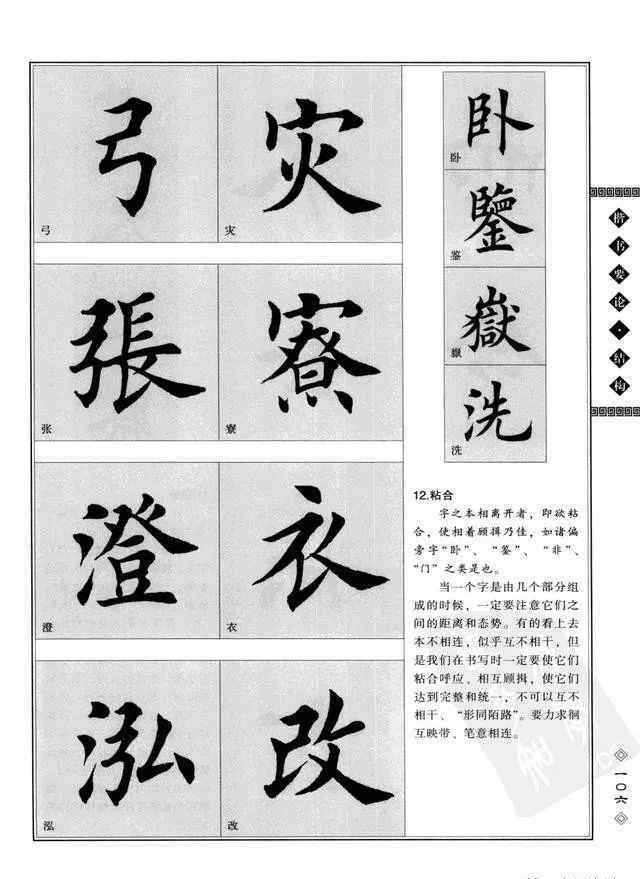 弓
灾
弓
灾
張
寮
张
寮
澄
衣
澄
衣
泓
改
泓
改
卧
卧
鑒
鉴
嶽
嶽
洗
洗
12.粘合
字之本相离开者，即欲粘
合，使相着顾揖乃佳，如诸偏
旁字“卧”、“鉴”、“非”、
“门”之类是也。
当一个字是由几个部分组
成的时候，一定要注意它们之
间的距离和态势。有的看上去
本不相连，似乎互不相干，但
是我们在书写时一定要使它们
粘合呼应、相互顾揖，使它们
达到完整和统一，不可以互不
相干、“形同陌路”。要力求徊
互映带、笔意相连。
楷书要论·结构
一〇六